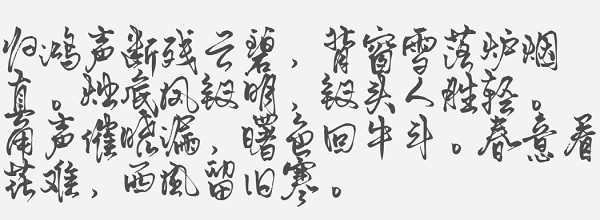 归鸿声断残云碧，背窗雪落炉烟
直。烛底凤钗明，钗头人胜轻。
角声催晓漏，曙色回牛斗。春意看
花难，西风留旧寒。